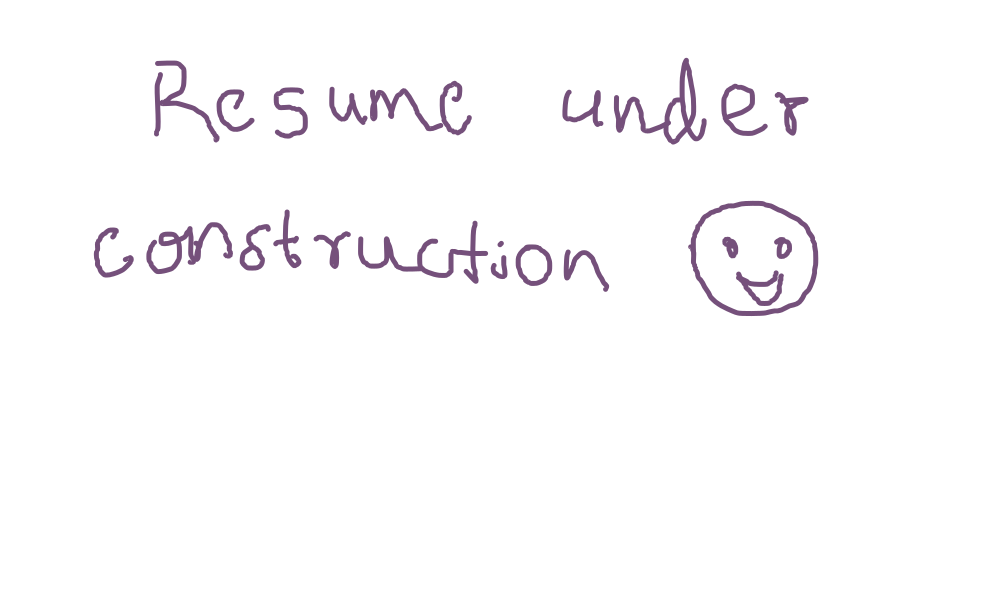 Resume under
construction